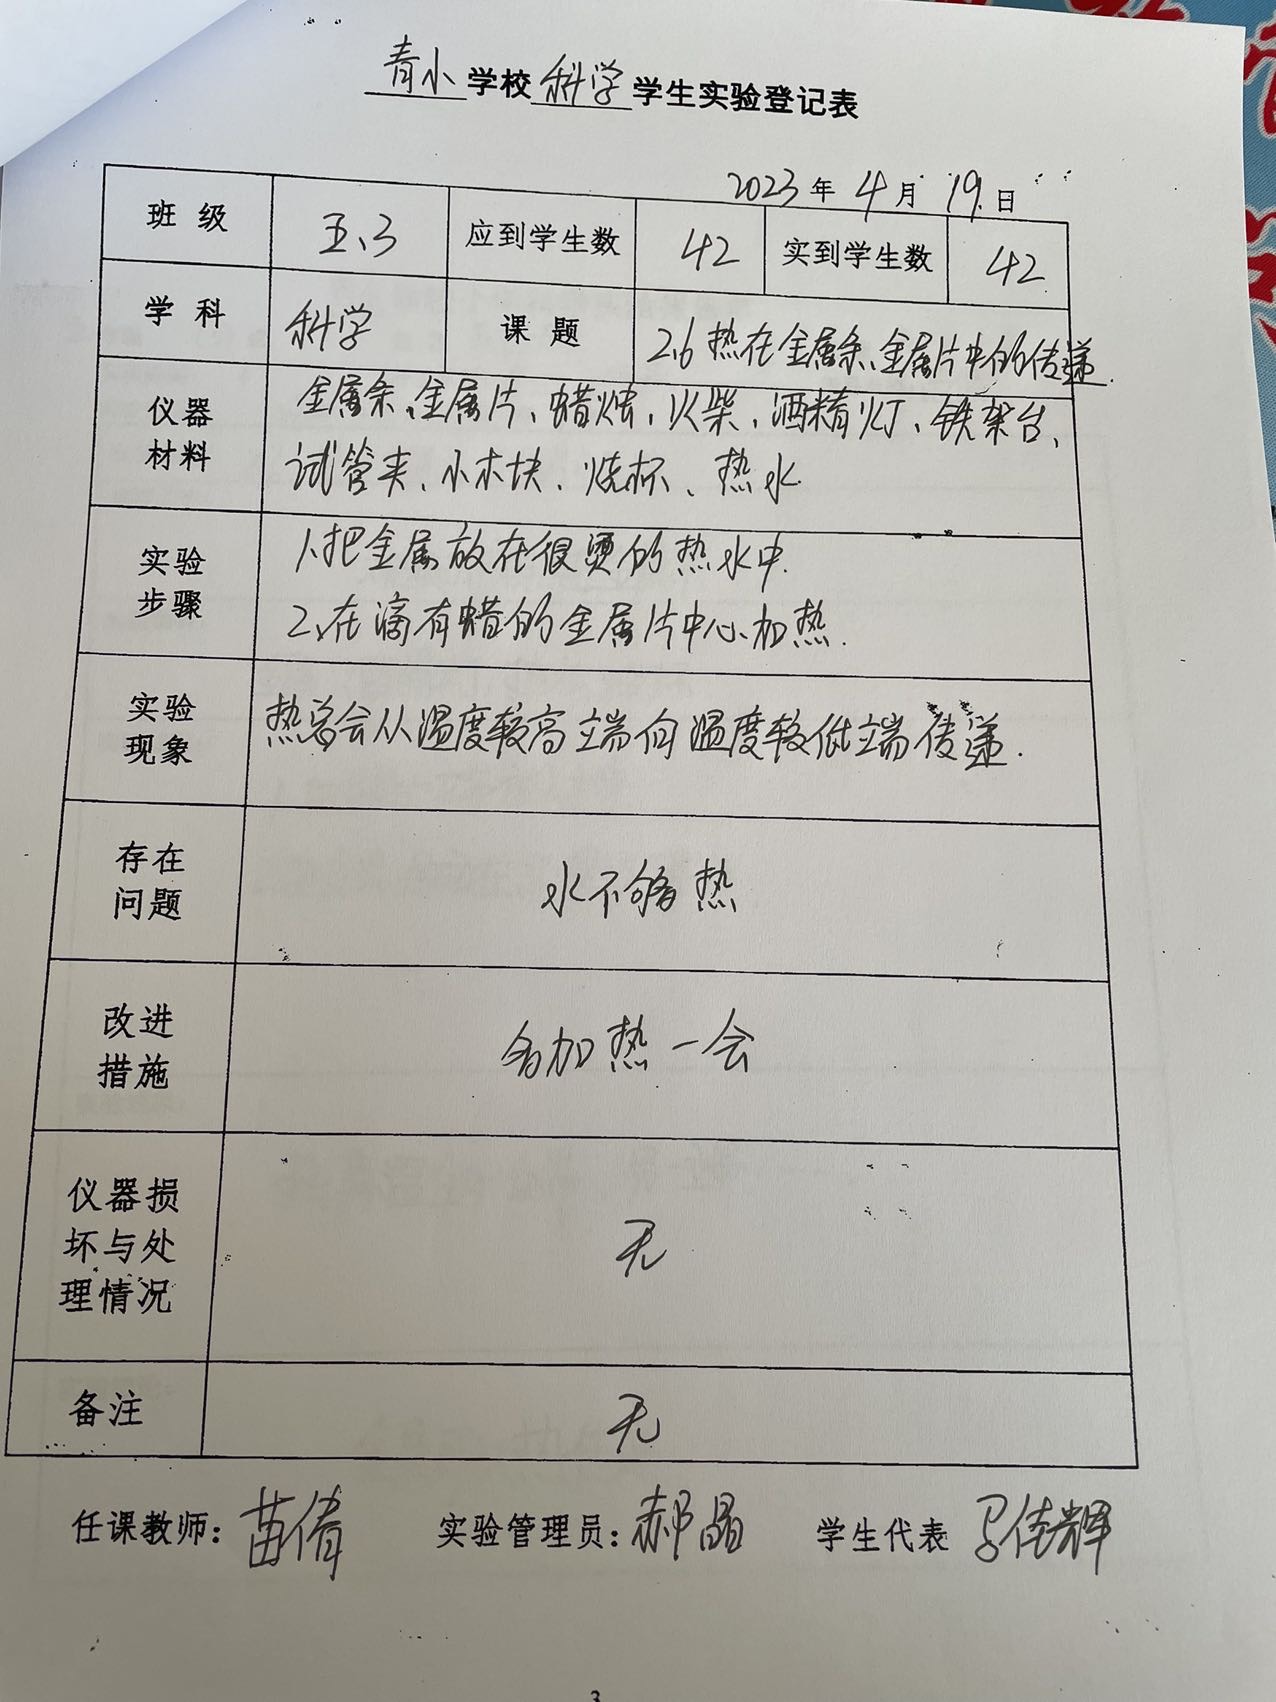 青小学校科学学生实验登记表
2023年4月19日
班级 五、3 应到学生数 42 实到学生数 42
学科 科学 课题 2.6热在金属条、金属片中的传递.
仪器材料 金属条、金属片、蜡烛、火柴、酒精灯、铁架台、
试管夹、小木块、烧杯、热水.
实验步骤 1、把金属放在很烫的热水中.
2、在滴有蜡的金属片中心加热.
实验现象 热总会从温度较高立端向温度较低立端传递.
存在问题 水不够热
改进措施 多加热一会
仪器损坏与处理情况 无
备注 无
任课教师: 苗倩 实验管理员: 郝晶 学生代表 马佳辉
3